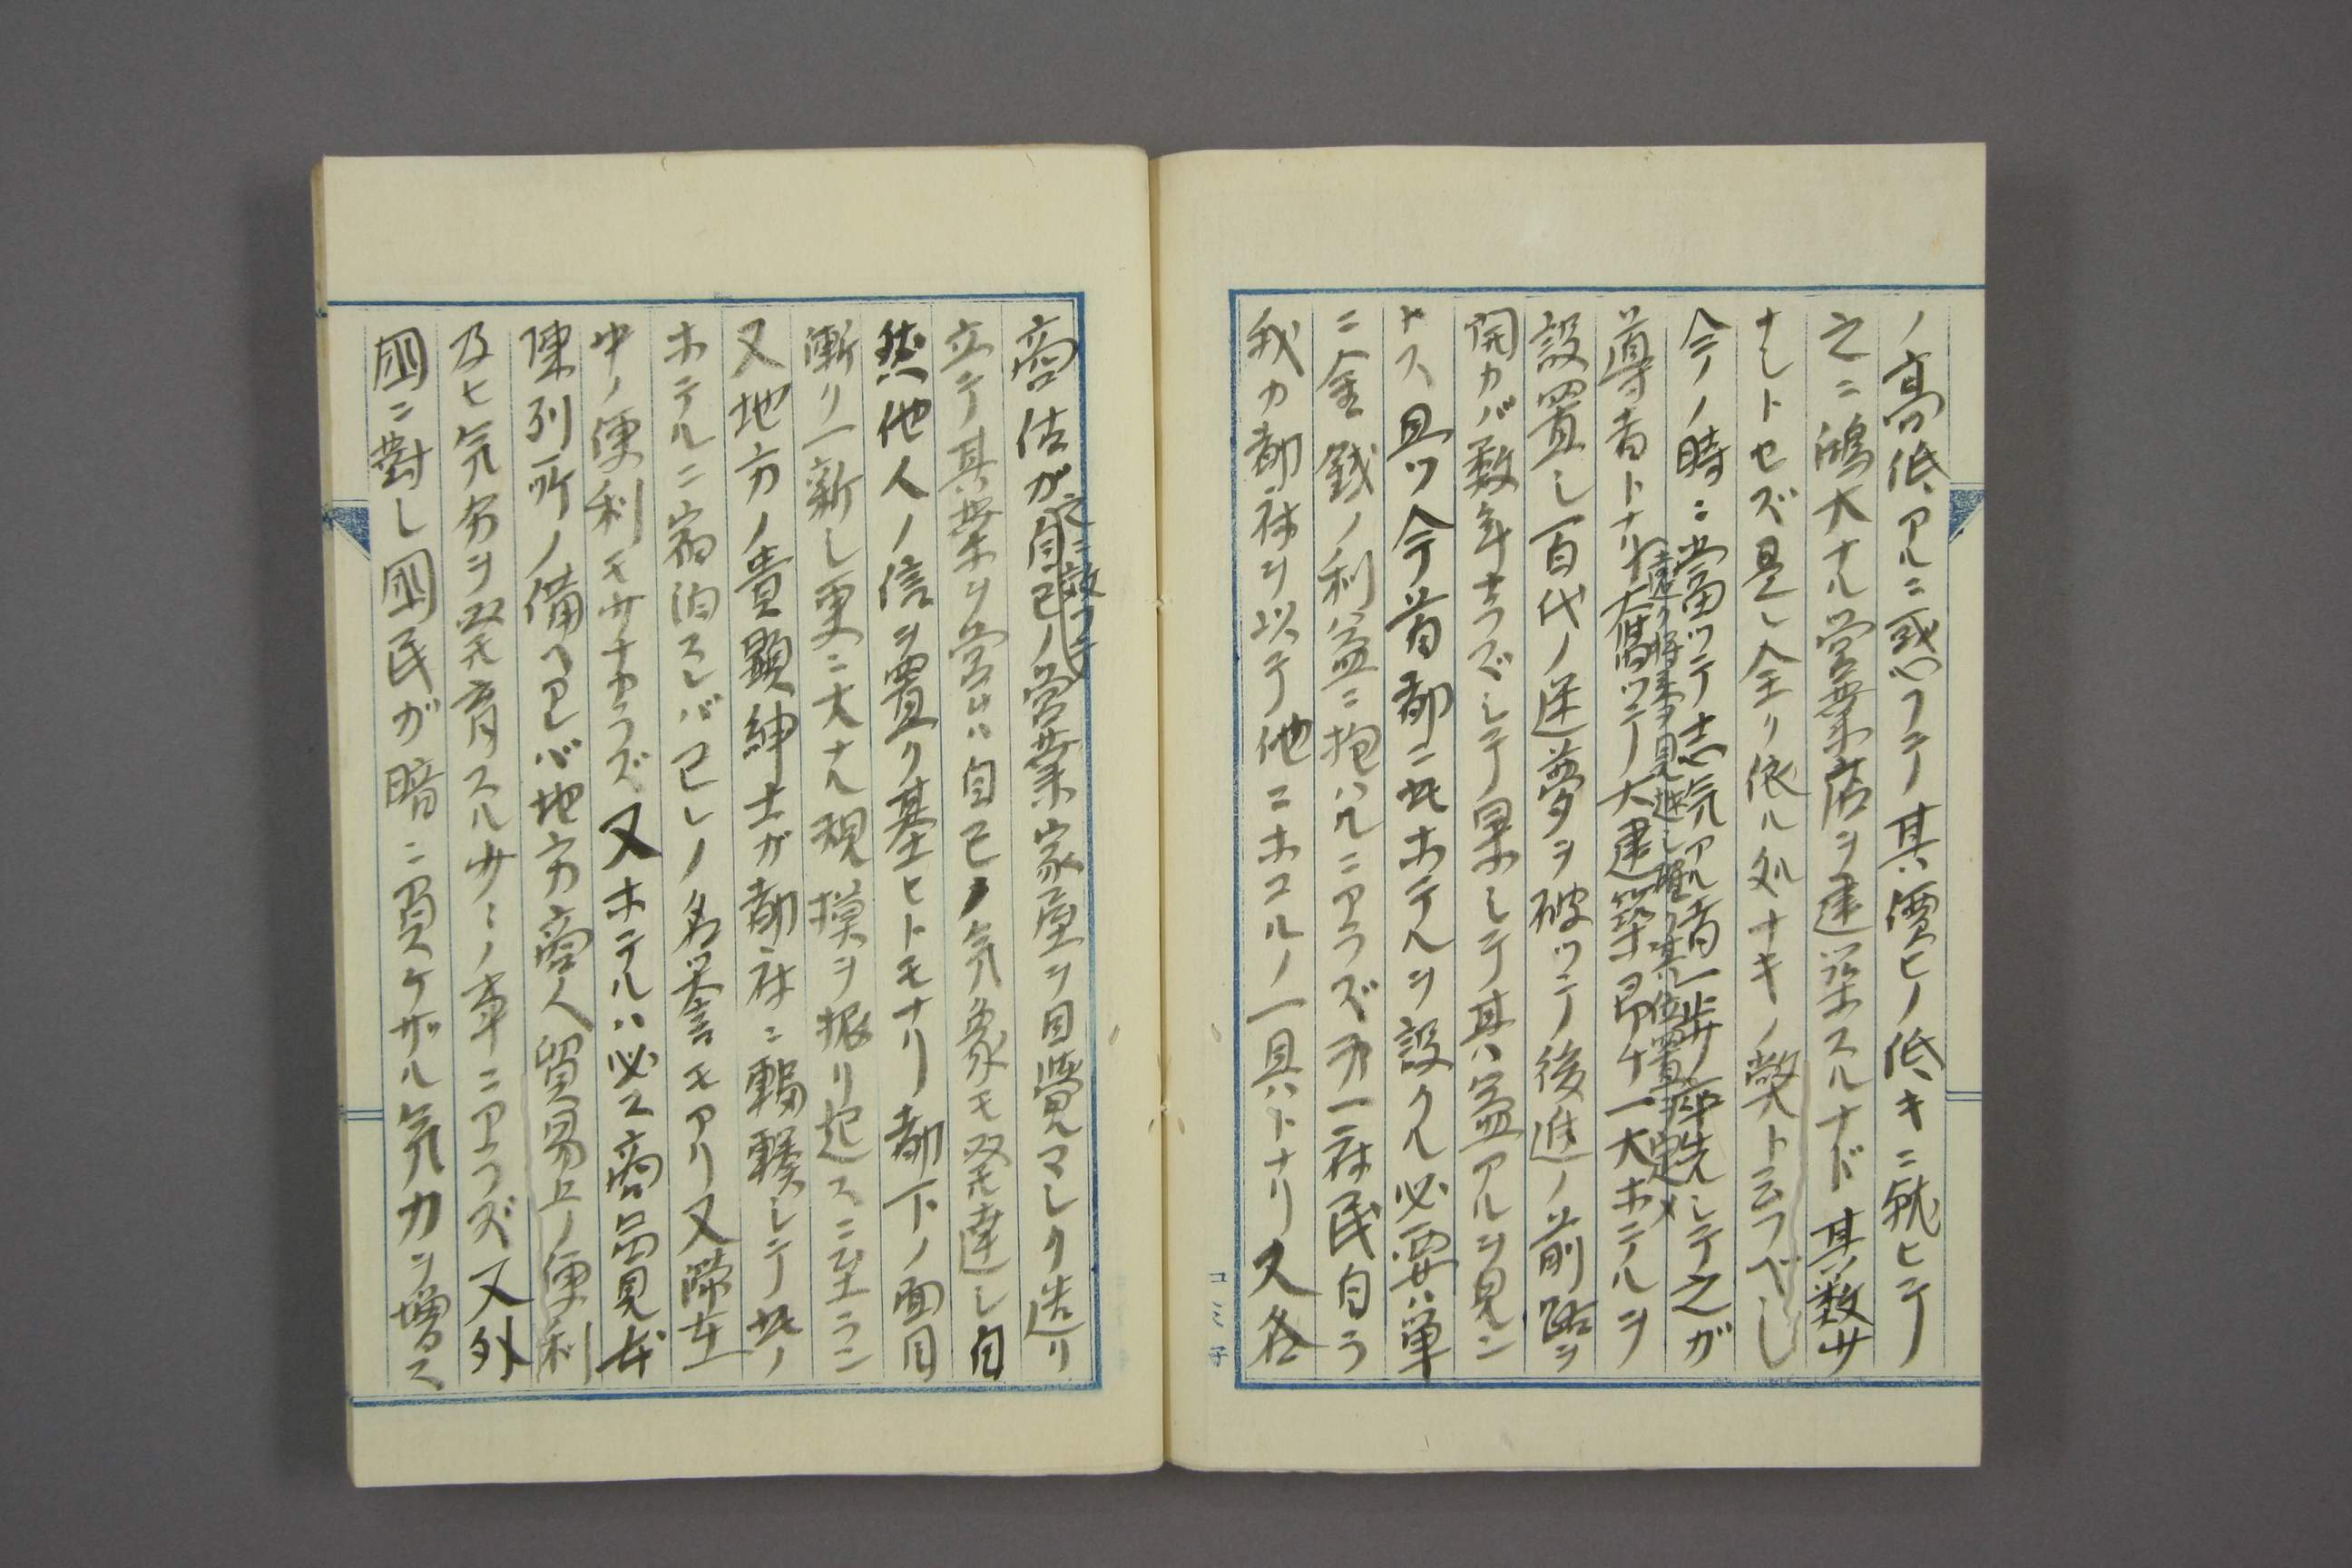 ノ高低アルニ惑フテ其價ヒノ低キニ就ヒテ
之ニ鴻大ナル営業店ヲ建築スルナド其数サ
ナシトセズ是レ全ク依ル処ナキノ弊ト云フベシ
今ノ時ニ當ツテ志気アル者一歩卒先シテ之ガ
遠ク将来ヲ見込ミ確ク其位置ヲ定メ
導者トナリ奮ツテ大建築即チ一大ホテルヲ
設置シ百代ノ迷夢ヲ破ツテ後進ノ前路ヲ
開カバ数年ナラズシテ果シテ其益アルヲ見ン
トス且ツ今首都ニ此ホテルヲ設クル必要ハ単
ニ金銭ノ利益ニ抱ハルニアラズ市民自ラ
我カ都府ヲ以テ他ニホコルノ一具トナリ又各
商估が之ニ效フテ自己ノ営業家屋ヲ目覺マシク造リ
立テ其業ヲ営ハ自己ノ気象モ発達シ自
然他人ノ信ヲ置ク基ヒトモナリ都下ノ面目
漸ク一新シ更ニ大ナル規摸ヲ振リ起スニ至ラン
又地方ノ貴顕紳士ガ都府ニ輻輳シテ此ノ
ホテルニ宿泊スレバ己レノ名譽モアリ又滞在
中ノ便利モ少ナカラズ又ホテルハ必ス商品見本
陳列所ノ備ヘアレバ地方商人貿易上ノ便利
及ヒ気力ヲ発育スル少ヽノ事ニアラズ又外
國ニ對シ國民が暗ニ負ケザル気力ヲ増ス
コミ子